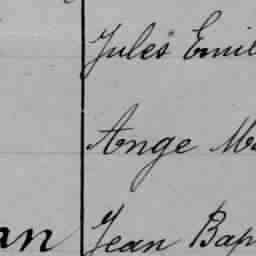 Jules Emil
Ange Ma
an Jean Bap